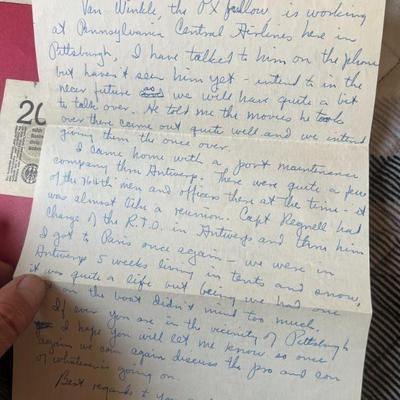 Van Winkle, the PX fellow, is working
at Pennsylvania Central Airlines here in
Pittsburgh, I have talked to him on the phone
but haven't seen him yet - intend to in the
near future we will have quite a bit
to talk over. He told me the movies he took
over there came out quite well and we intend
giving them the once over.
I came home with a port maintenance
company thru Antwerp. There were quite a few
of the 764th men and officers there at the time - it
was almost like a reunion. Capt Regnell had
charge of the R.T.O. in Antwerp and thru him
I got to Paris once again - we were in
Antwerp 5 weeks living in tents and snow,
it was quite a life but being we had one
on the boat didn't mind too much.
If ever you are in the vicinity of Pittsburgh
I hope you will let me know, so once
again we can again discuss the pro and con
of whatever is going on.
Best regards to you
20